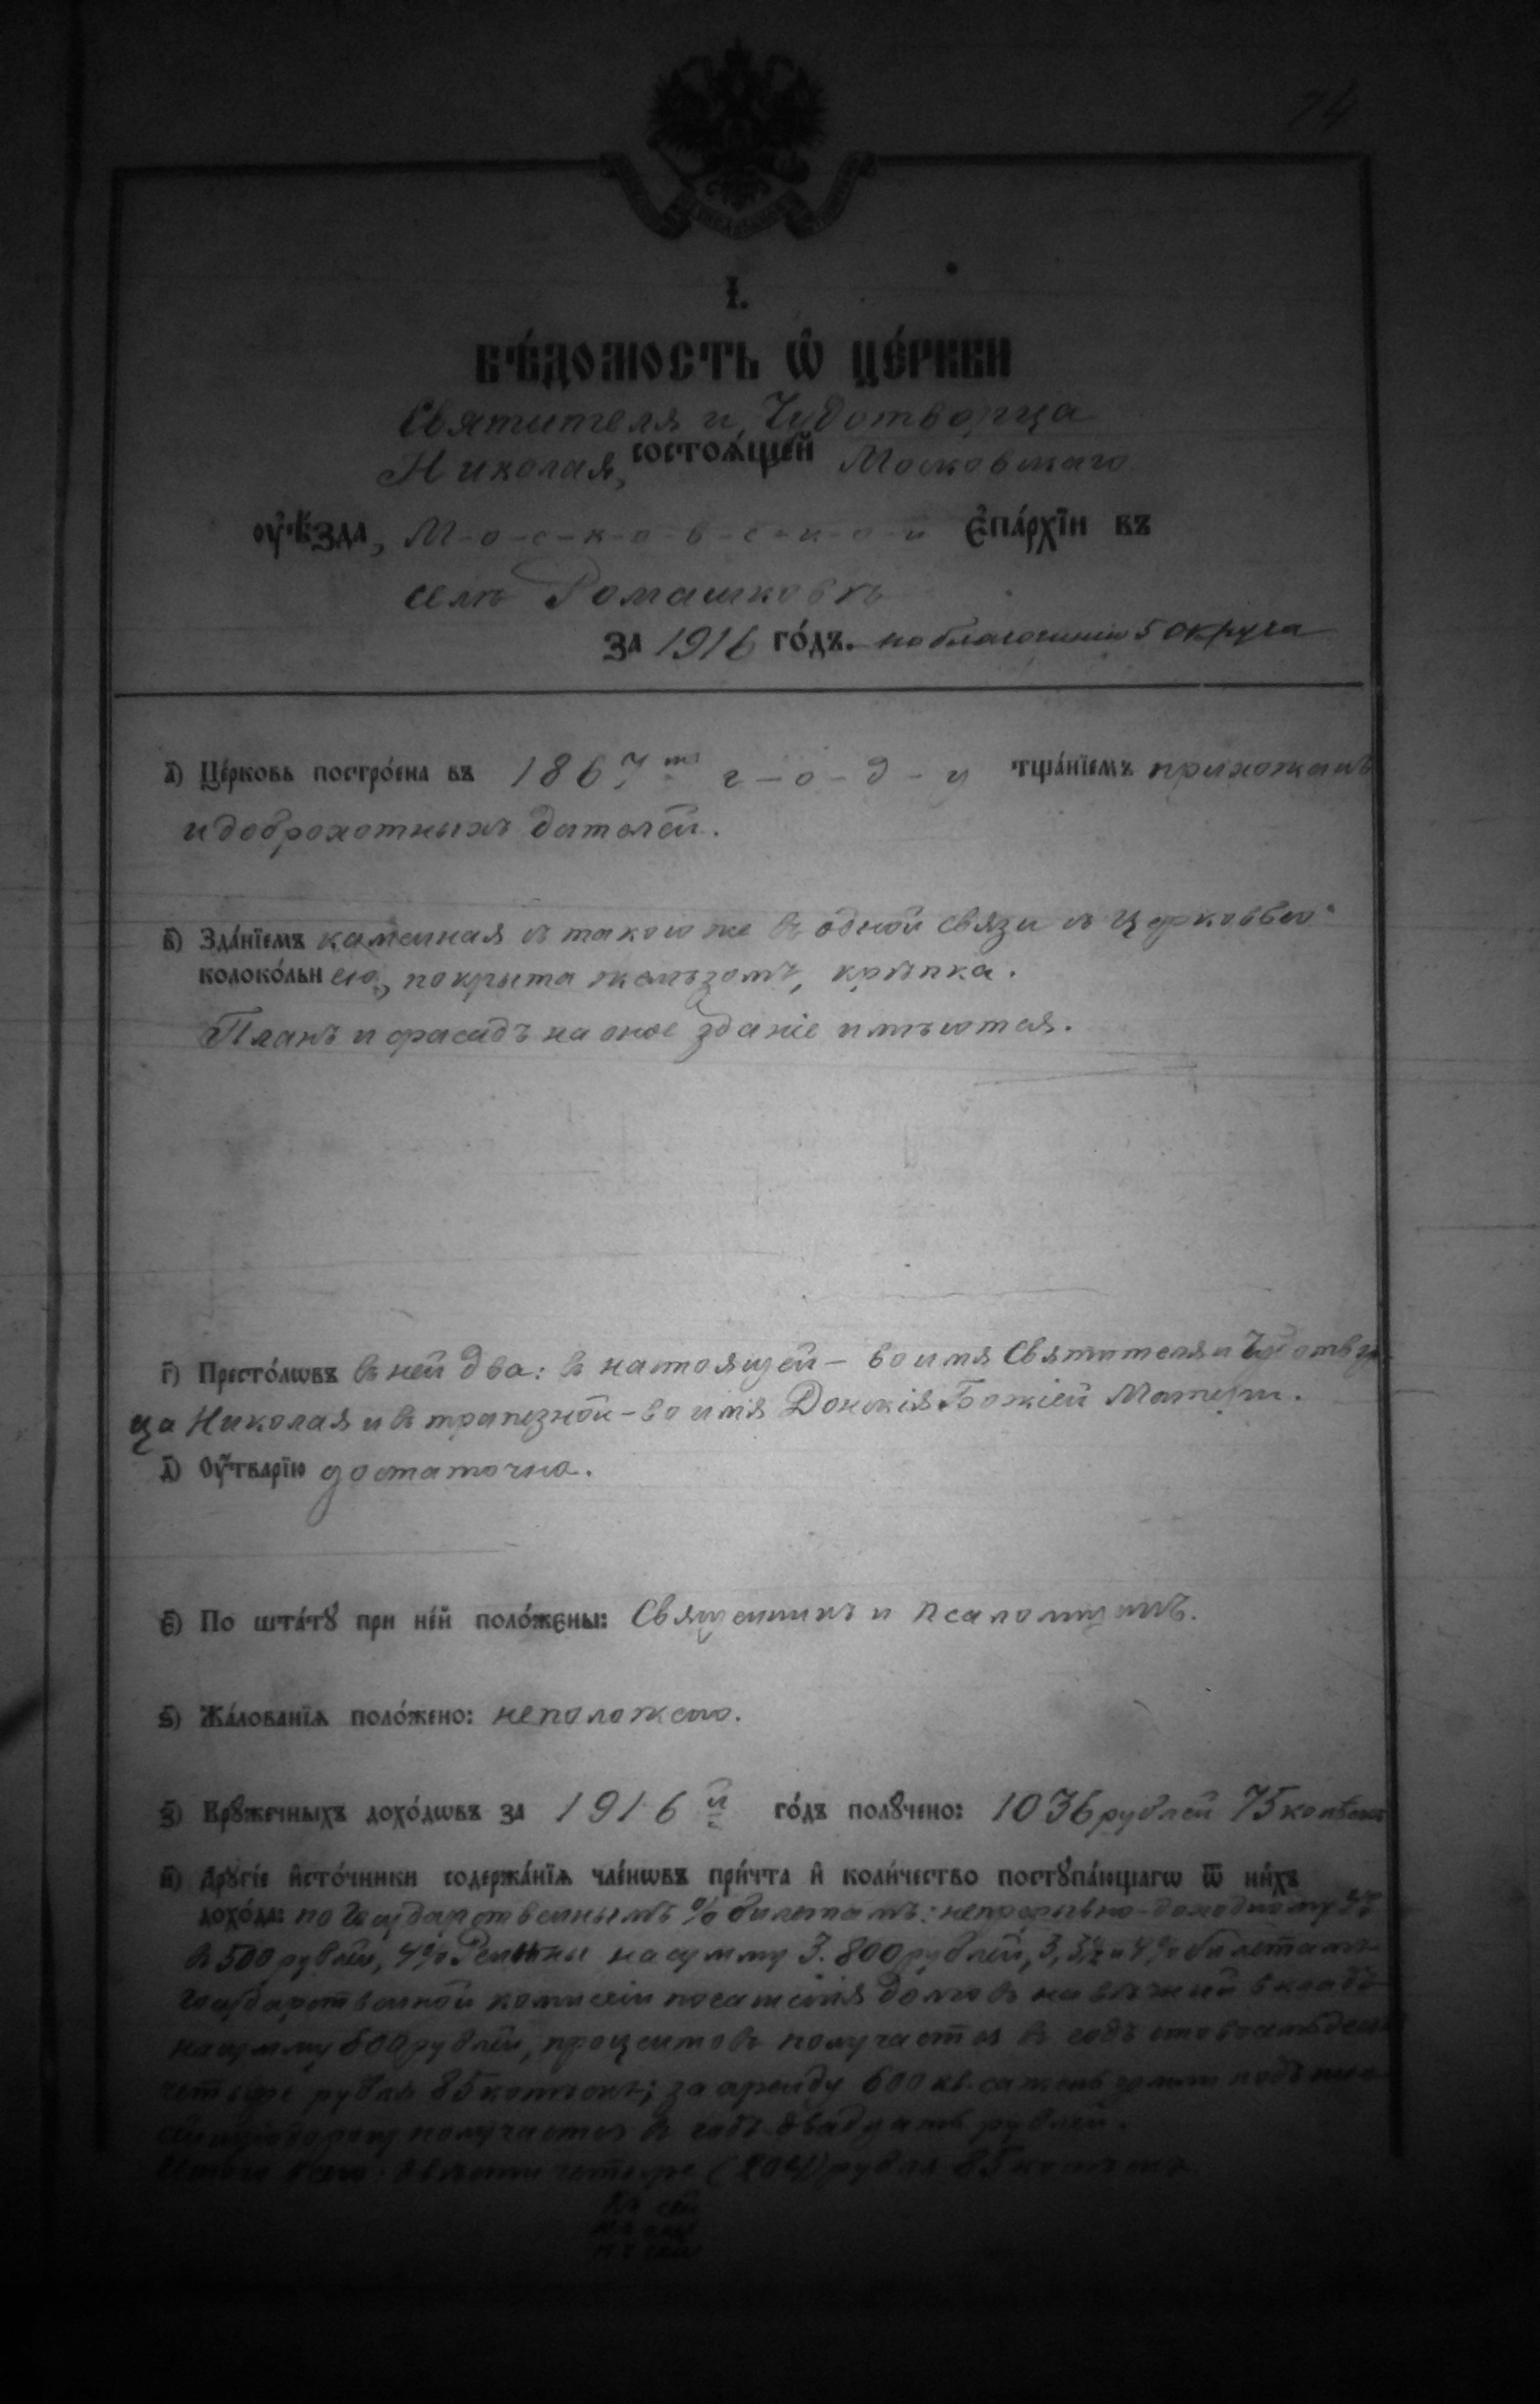 74
І.
Вѣ́домость ѡ҆ це́ркви
Святителя и Чудотворца
Николая, состоѧ́щей Московскаго
оуѣ́зда, М-о-с-к-о-в-с-к-о-й є҆па́рхїи въ
селѣ Ромашковѣ
за 1916 го́дъ. по благочинію 5 округа
а҃) Це́рковь постро́ена въ 1867 мъ г-о-д-у тща́нїемъ прихожанъ
и доброхотныхъ дателей.
в҃) Зда́нїемъ каменная съ такою же въ одной связи съ церковью
колоко́льнею, покрыта желѣзомъ, крѣпка.
Планъ и фасадъ на оное зданіе имѣются.
г҃) Престо́лѡвъ въ ней два: въ настоящей – во имя Святителя и Чудотвор-
ца Николая и въ трапезной – во имя Донскія Божіей Матери.
д҃) Оу҆́тварїю достаточна.
є҃) По шта́тꙋ при не́й поло́жены: Священникъ и псаломщикъ.
ѕ҃) Жа́лованїѧ поло́жено: не положено.
з҃) Крꙋ́жечныхъ дохо́дѡвъ за 1916 й го́дъ полꙋ́чено: 1036 рублей 75 копѣекъ
и҃) Дрꙋгі́е и҆сто́чники содержа́нїѧ чле́нѡвъ при́чта и҆ коли́чество постꙋпа́ющагѡ ѿ ни́хъ
дохо́да: по Государственнымъ % билетамъ: непрерывно-доходному
въ 500 рублей, 4% Ренты на сумму 3.800 рублей, 3, 3½ и 4% билетамъ
Государственной комиссіи погашенія долговъ на вѣчный вкладъ
на сумму 600 рублей, процентовъ получается въ годъ сто восемьдесятъ
четыре рубля 85 копѣекъ; за аренду 600 кв. сажень земли подъ
получается въ годъ двадцать рублей.
Итого всего: двѣсти четыре (204) рубля 85 копѣекъ.